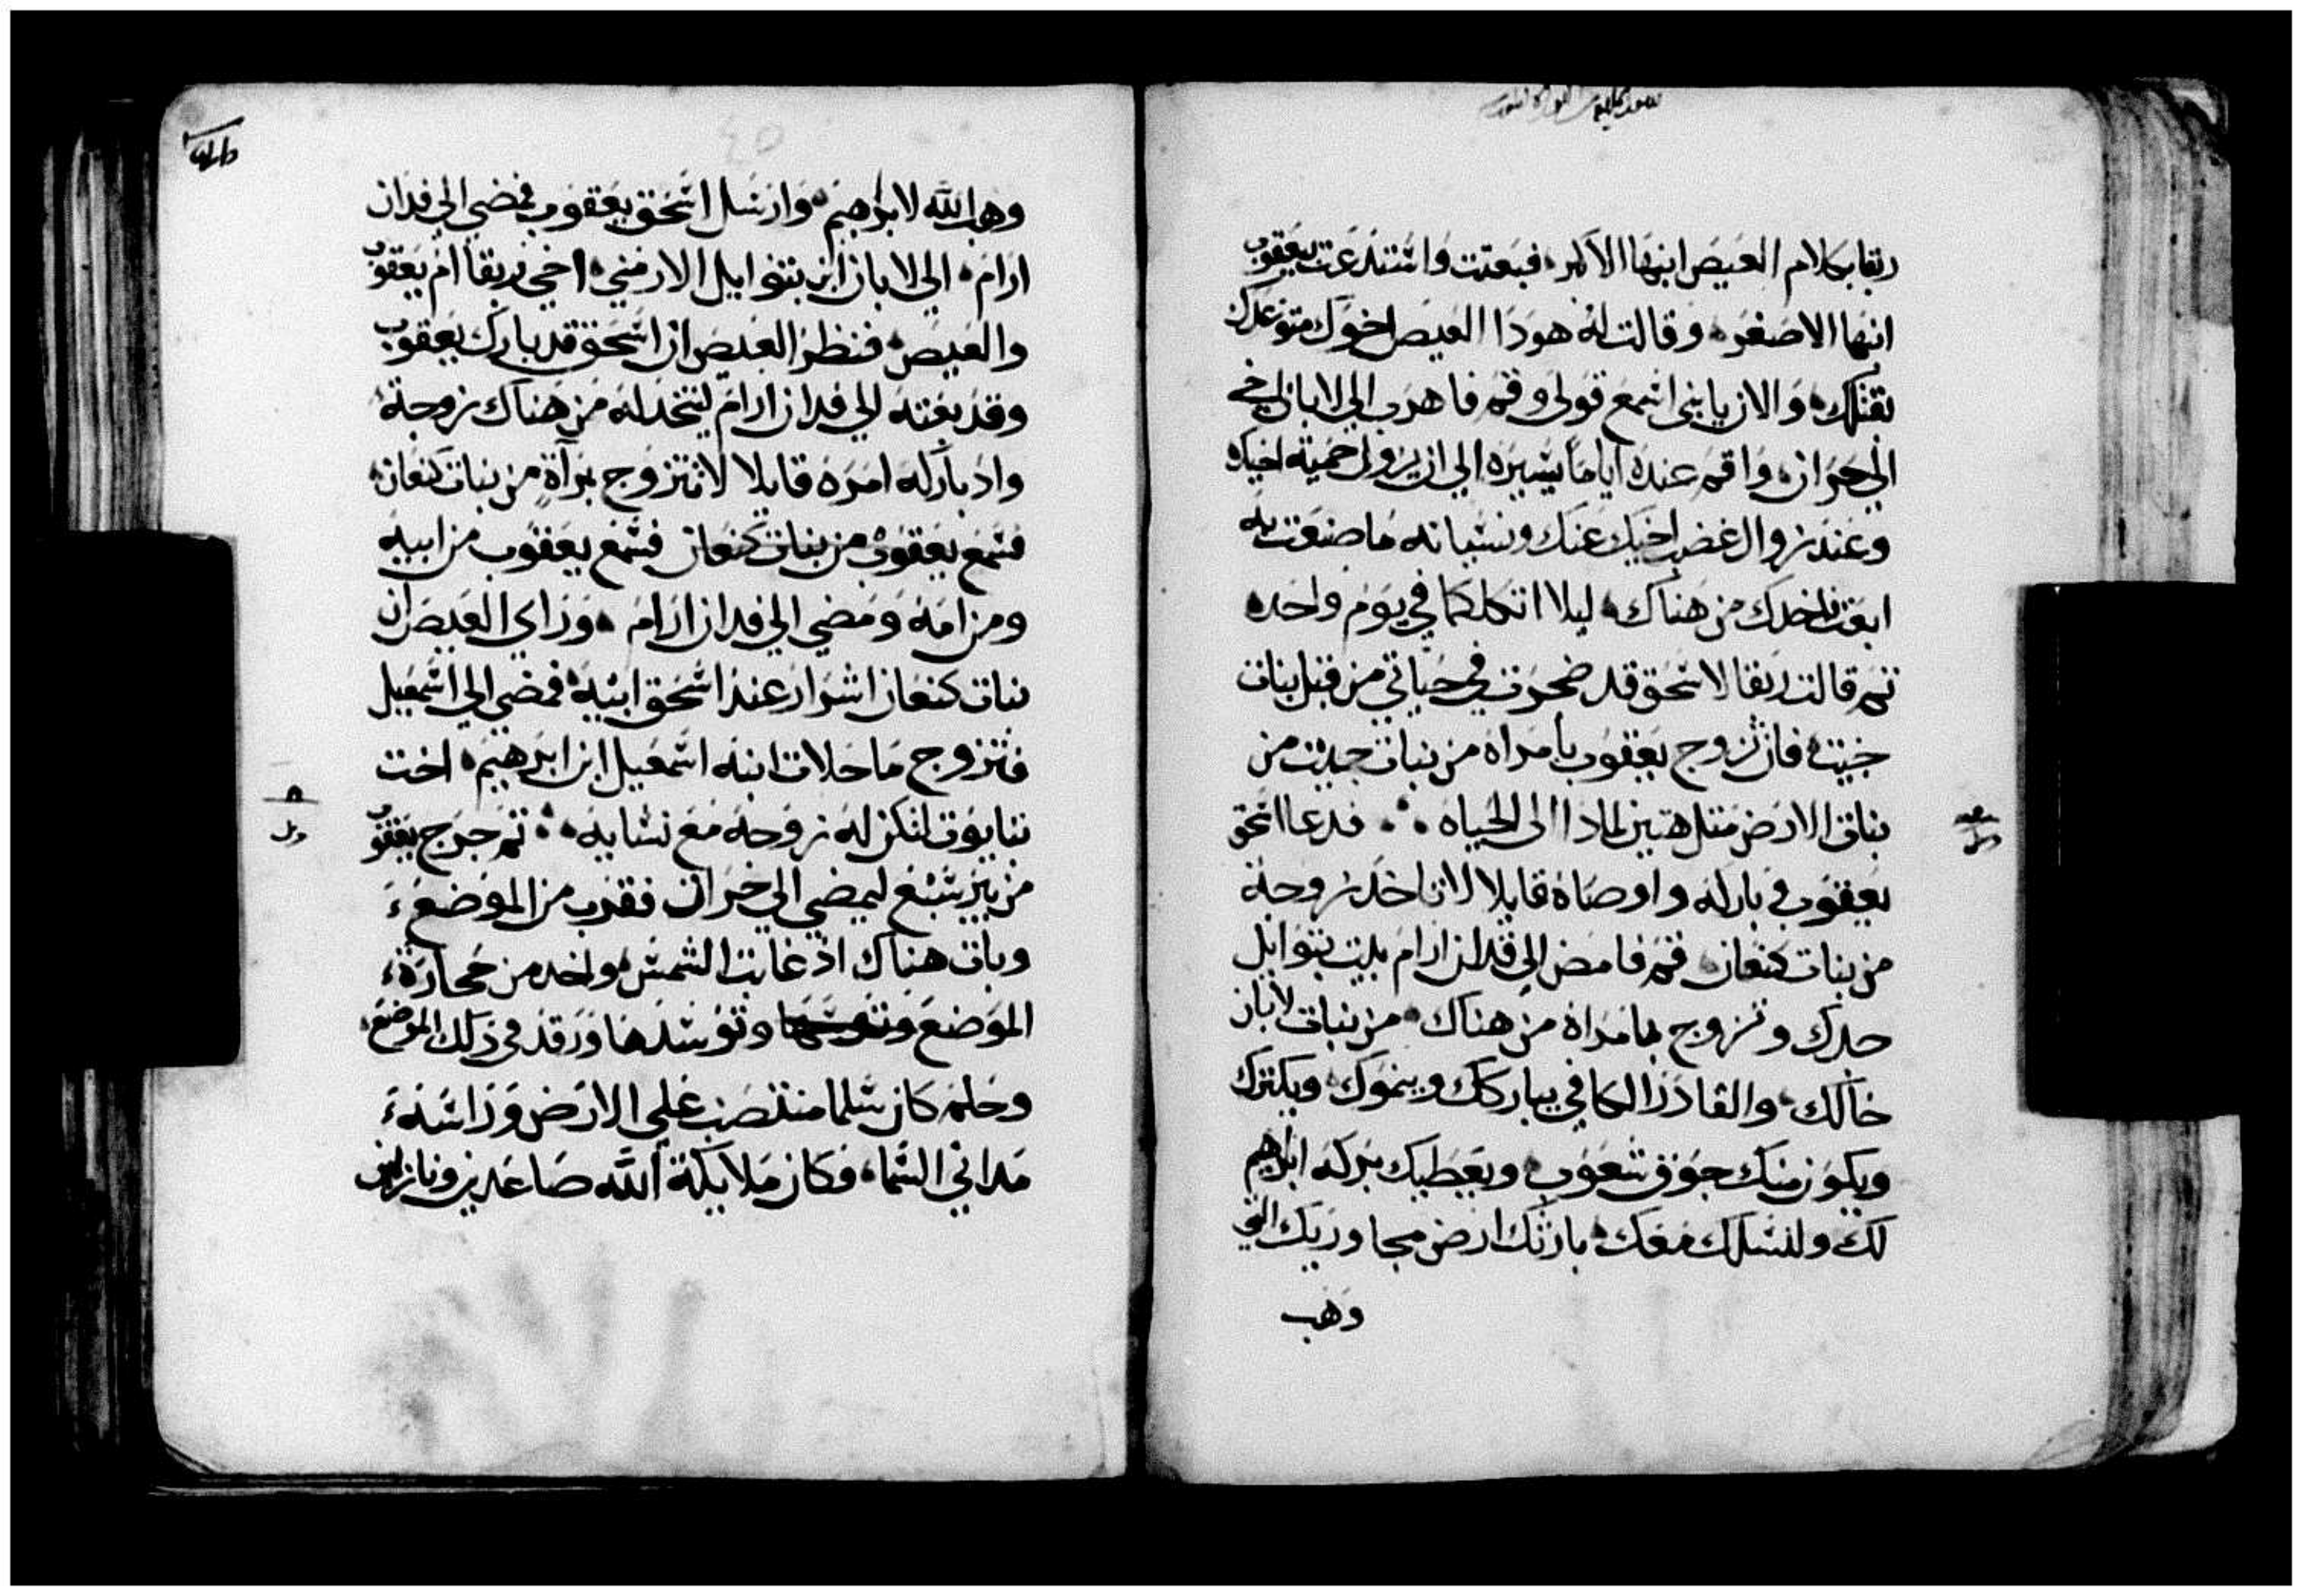 ربقا بكلام العيص ابنها الاكبر فبعتت واستدعت بيعقوب
ابنها الاصغر وقالت له هودا العيص اخوك متوعدك
بقتلك والان يا بني اسمع قولي وقم فاهرب الي لابان اخي
الي حران واقم عنده اياما يسيره الي ان يزول حمية اخيك
وعند زوال غضب اخيك عنك ونسيانه ما صنعت به
ابعت فاخدك من هناك ليلا اتكلكما في يوم واحد
تم قالت ربقا لاسحق قد ضجرت في حياتي من قبل بنات
حيت فان تزوج يعقوب بامراه من بنات حيت من
بنات الارض متل هتين لمادا لي الحياه فدعا اسحق
يعقوب وباركه واوصاه قايلا لا تاخد زوجة
من بنات كنعان قم فامض الي فدان ارام بيت بتوايل
جدك وتزوج بامراه من هناك من بنات لابان
خالك والقادر الكافي يباركك وينموك ويكترك
ويكون منك جوق شعوب ويعطيك بركه ابرهيم
لك ولنسلك معك بارثك ارض مجاوريك التي
وهب
وهب الله لابرهيم وارسل اسحق يعقوب فمضي الي فدان
ارام الي لابان ابن بتوايل الارمني اخي ربقا ام يعقوب
والعيص فنظر العيص ان اسحق قد بارك يعقوب
وقد بعته الي فدان ارام ليتخد له من هناك زوجة
واد باركه امره قايلا لا تتزوج بمرآة من بنات كنعان
فسمع يعقوب من بنات كنعان فسمع يعقوب من ابيه
ومن امه ومضي الي فدان ارام وراي العيص ان
بنات كنعان اشرار عند اسحق ابيه فمضي الي اسمعيل
فتزوج ماحلات ابنه اسمعيل ابن ابرهيم اخت
نبايوت لتكن له زوجه مع نسايه تم خرج يعقوب
من بير سبع ليمضي الي حران فقرب من الموضع
وبات هناك اذ غابت الشمس واخد من حجارة
الموضع وتوسدها ورقد في ذلك الموضع
وحلم كان سلما منتصب علي الارض وراسه
مداني السما فكان ملايكة الله صاعدين ونازلين